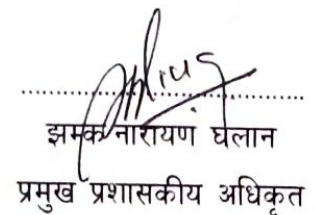 झमक नारायण घलान
प्रमुख प्रशासकीय अधिकृत